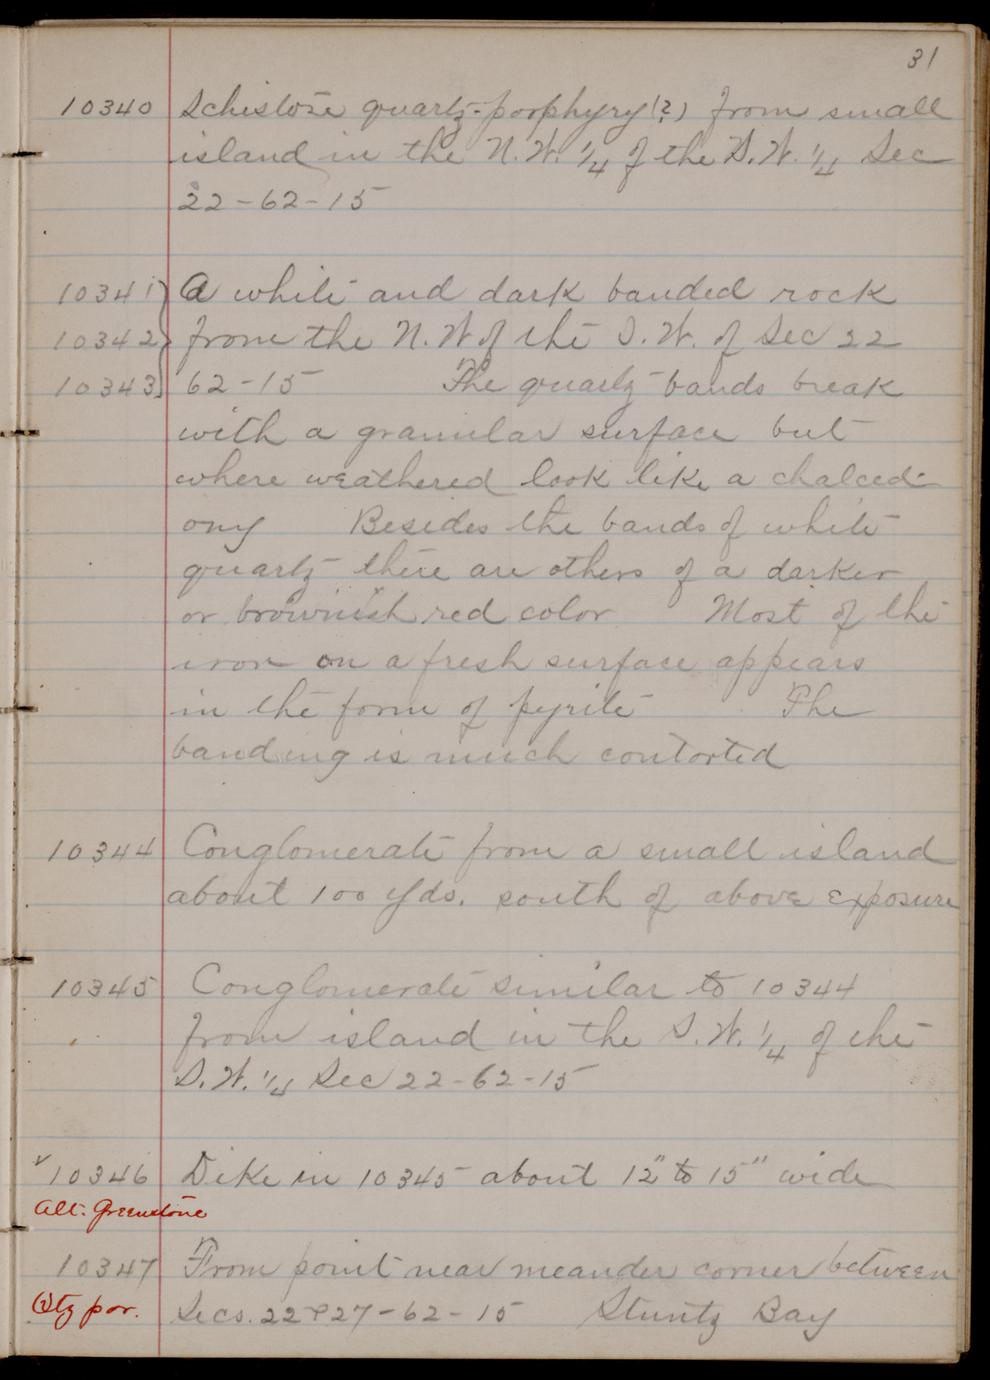 31
10340 Schistose quartz-porphyry(?) from small
island in the N.W. 1/4 of the S.W. 1/4 Sec
22-62-15
10341} A white and dark banded rock
10342} from the N.W of the S.W. of Sec 22
10343} 62-15 The quartz bands break
with a granular surface but
where weathered look like a chalced-
ony Besides the bands of white
quartz there are others of a darker
or brownish red color Most of the
iron on a fresh surface appears
in the form of pyrite The
banding is much contorted
10344 Conglomerate from a small island
about 100 yds. south of above exposure
10345 Conglomerate similar to 10344
from island in the S.W. 1/4 of the
S.W. 1/4 Sec 22-62-15
✓10346 Dike in 10345 about 12" to 15" wide
alt: Greenstone
10347 From point near meander corner between
Qtz por. Secs. 22 & 27-62-15 Stuntz Bay